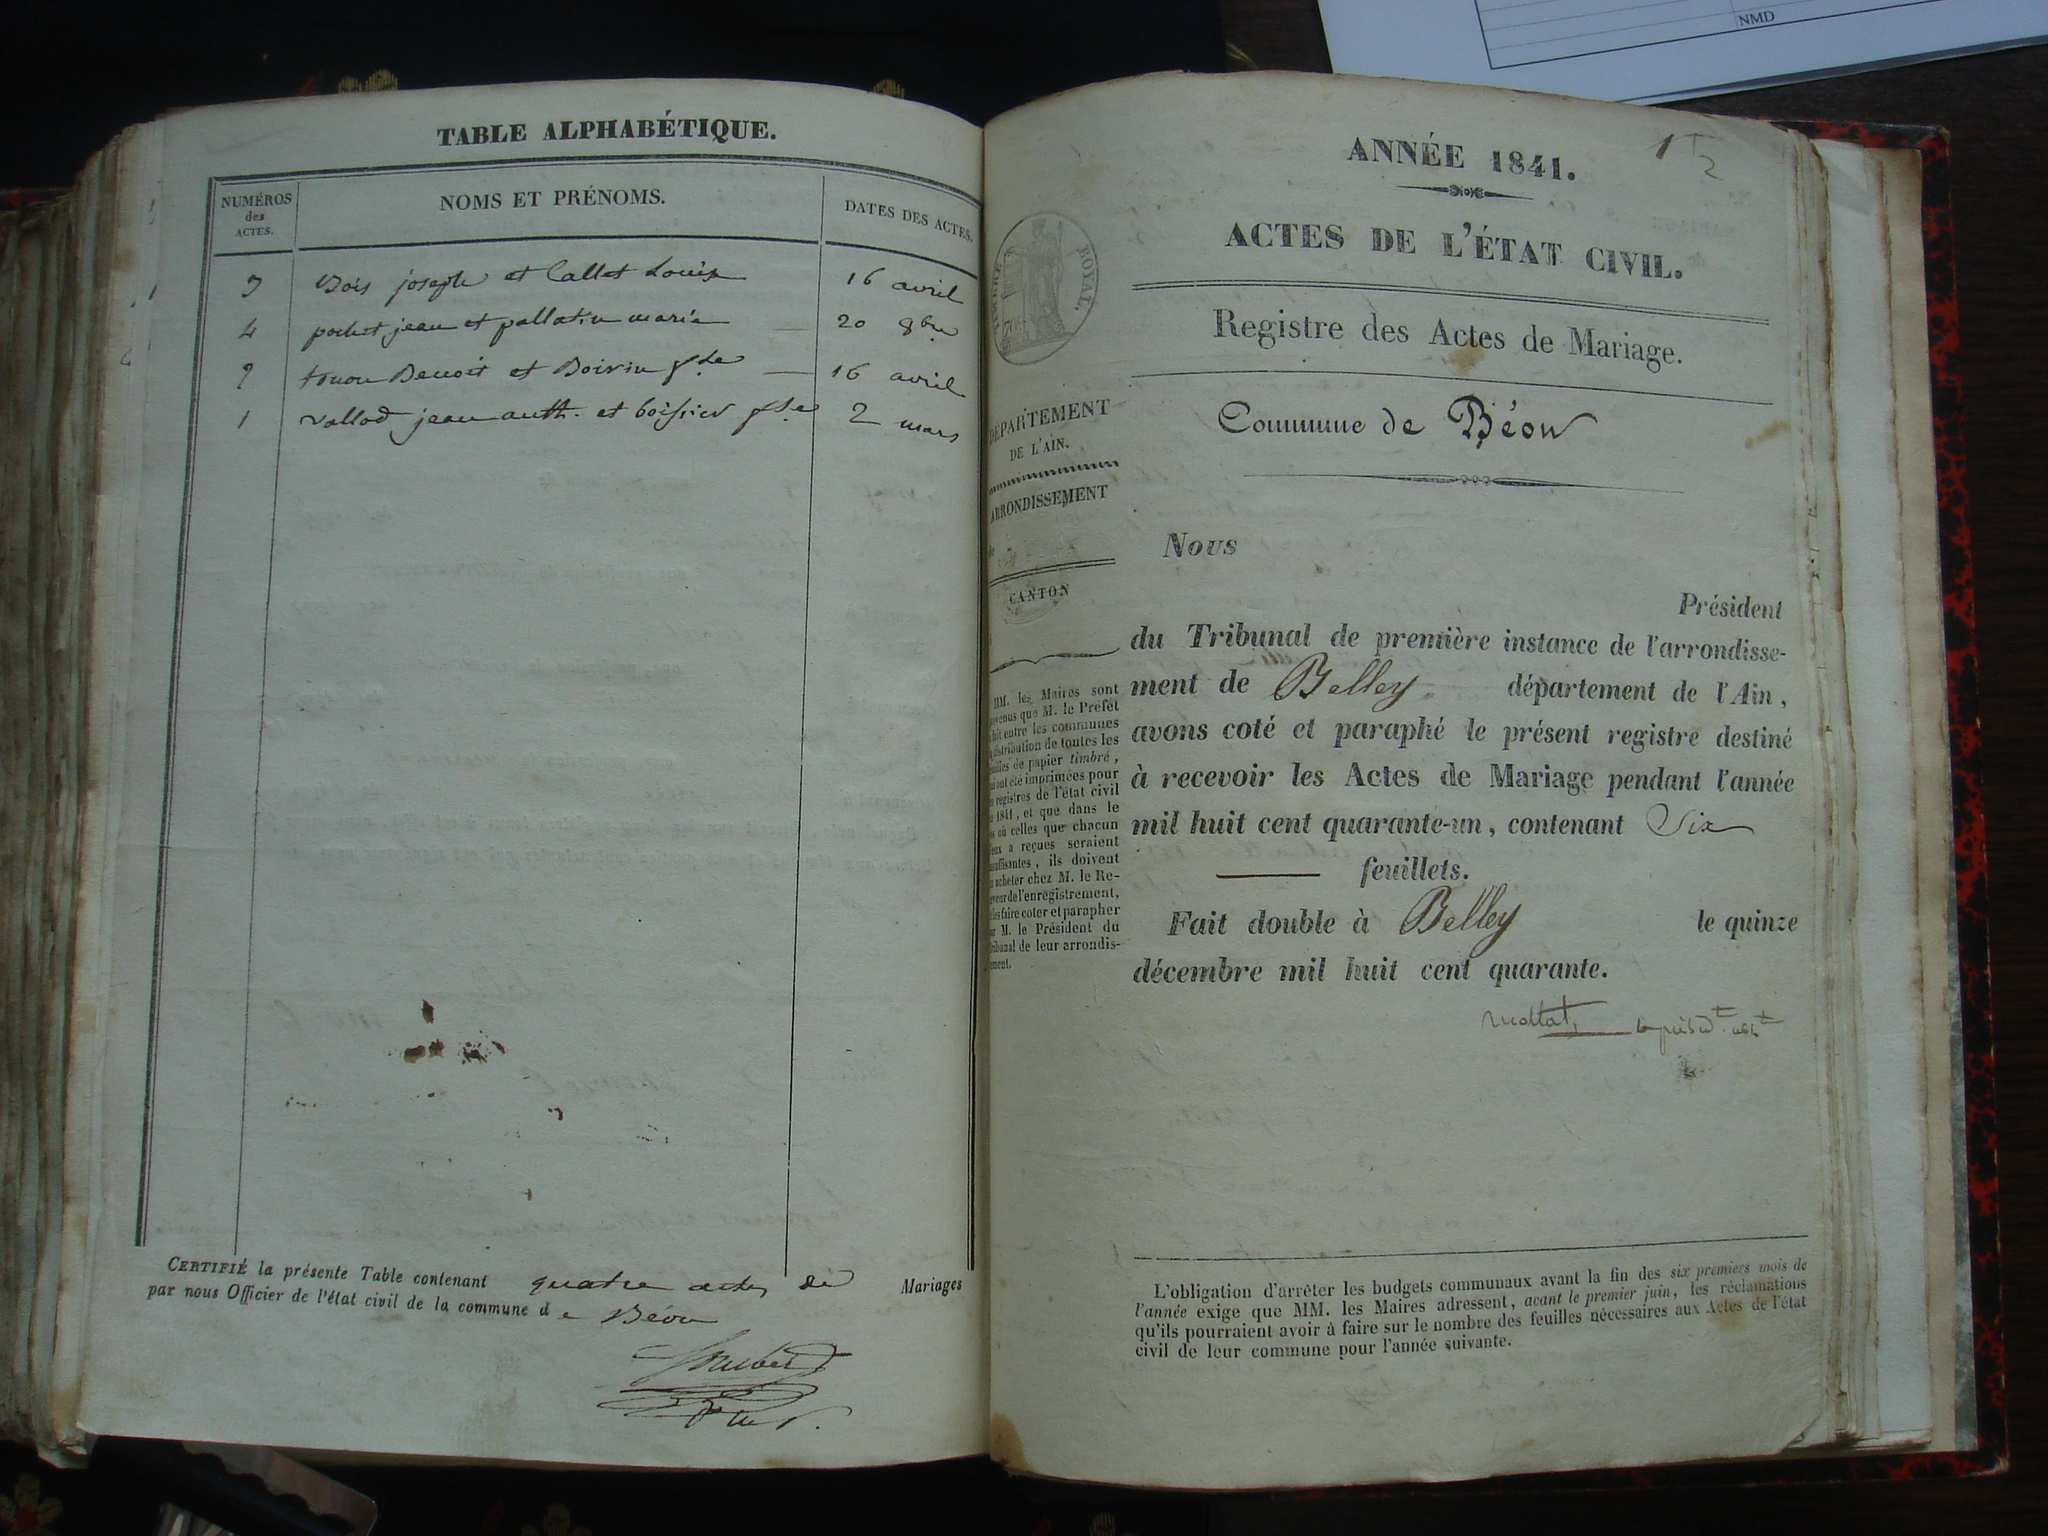 NMD
TABLE ALPHABÉTIQUE.
NUMÉROS
des
ACTES.
NOMS ET PRÉNOMS.
DATES DES ACTES.
3 Bois joseph et Callet Louise 16 avril
4 pochet jean et pallatin marie 20 8bre
2 Benoit et Boivin fse 16 avril
1 vallod jean anth. et boissier fse 2 mars
CERTIFIÉ la présente Table contenant quatre actes de Mariages
par nous Officier de l'état civil de la commune de Béon
1
2
ANNÉE 1841.
ACTES DE L'ÉTAT CIVIL.
Registre des Actes de Mariage.
Commune de Béon
TIMBRE ROYAL
DÉPARTEMENT
DE L'AIN.
ARRONDISSEMENT
de
CANTON
MM. les Maires sont
prévenus que M. le Préfet
a fait entre les communes
la distribution de toutes les
feuilles de papier timbré,
qui ont été imprimées pour
les registres de l'état civil
de 1841, et que dans le
cas où celles que chacun
d'eux a reçues seraient
insuffisantes, ils doivent
en acheter chez M. le Re-
ceveur de l'enregistrement,
et les faire coter et parapher
par M. le Président du
tribunal de leur arrondis-
sement.
Nous
Président
du Tribunal de première instance de l'arrondisse-
ment de Belley département de l'Ain,
avons coté et paraphé le présent registre destiné
à recevoir les Actes de Mariage pendant l'année
mil huit cent quarante-un, contenant Six
feuillets.
Fait double à Belley le quinze
décembre mil huit cent quarante.
L'obligation d'arrêter les budgets communaux avant la fin des six premiers mois de
l'année exige que MM. les Maires adressent, avant le premier juin, les réclamations
qu'ils pourraient avoir à faire sur le nombre des feuilles nécessaires aux Actes de l'état
civil de leur commune pour l'année suivante.